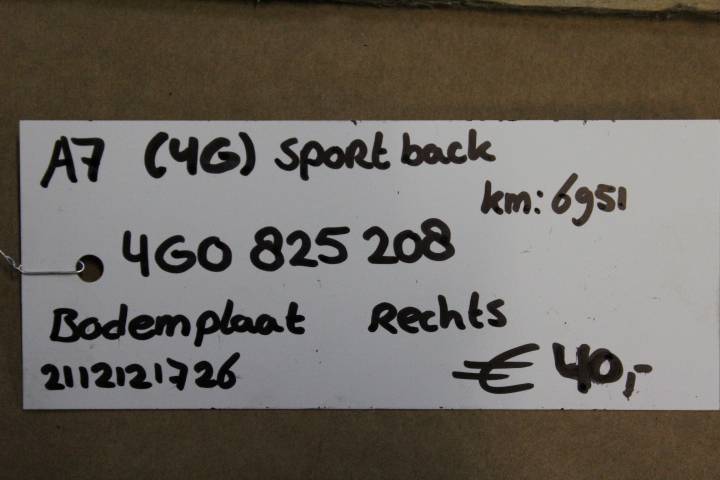 A7 (4G) Sportback
km: 6951
4G0 825 208
Bodemplaat Rechts
2112121726
€ 40,-